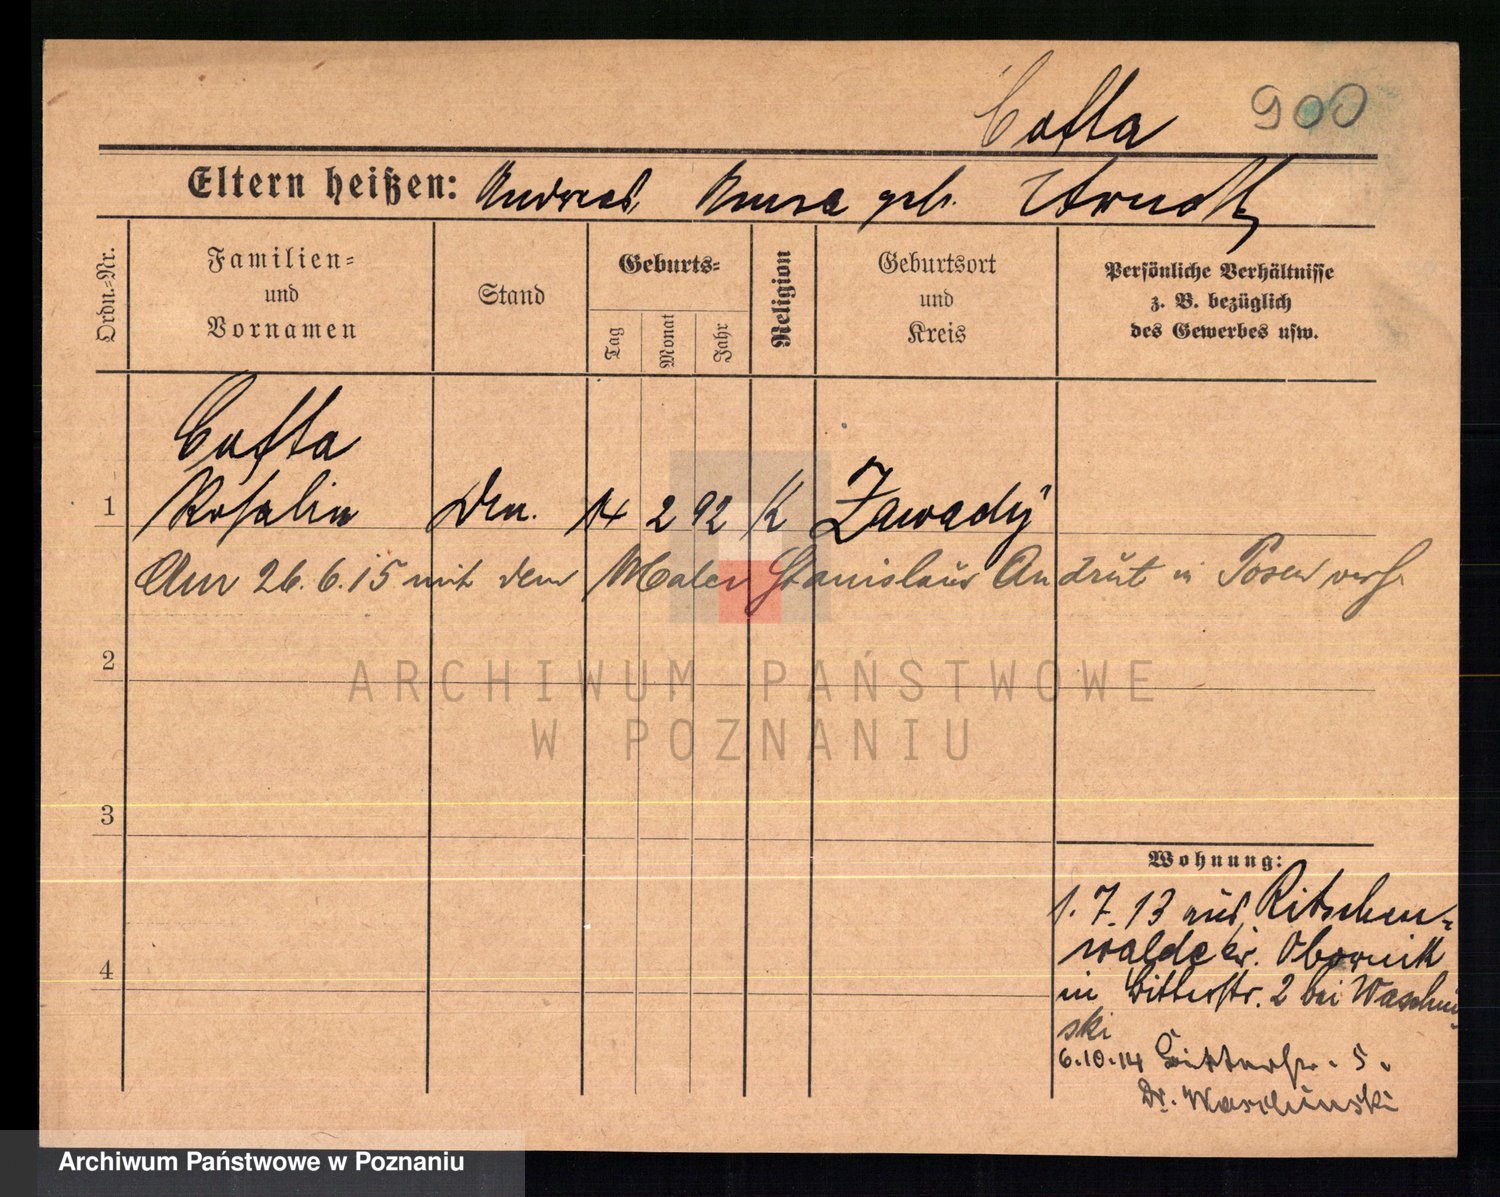 Cofta 900
Eltern heißen: Andreas, Anna geb. Arndt
Ordn.-Nr.
Familien-
und
Vornamen
Stand
Geburts-
Tag
Monat
Jahr
Religion
Geburtsort
und
Kreis
Persönliche Verhältnisse
z. B. bezüglich
des Gewerbes usw.
Cofta
1 Rosalia 14 2 92 K Zawady
Am 26.6.15 mit dem Maler Stanislaus Andrut in Posen verh.
2
ARCHIWUM PAŃSTWOWE
W POZNANIU
3
Wohnung:
1.7.13 aus Ritschen-
walde kr. Obornik
4
in Bitterstr. 2 bei Waschin
ski
6.10.14 Bitterstr. 5.
Dr. Waschinski
Archiwum Państwowe w Poznaniu